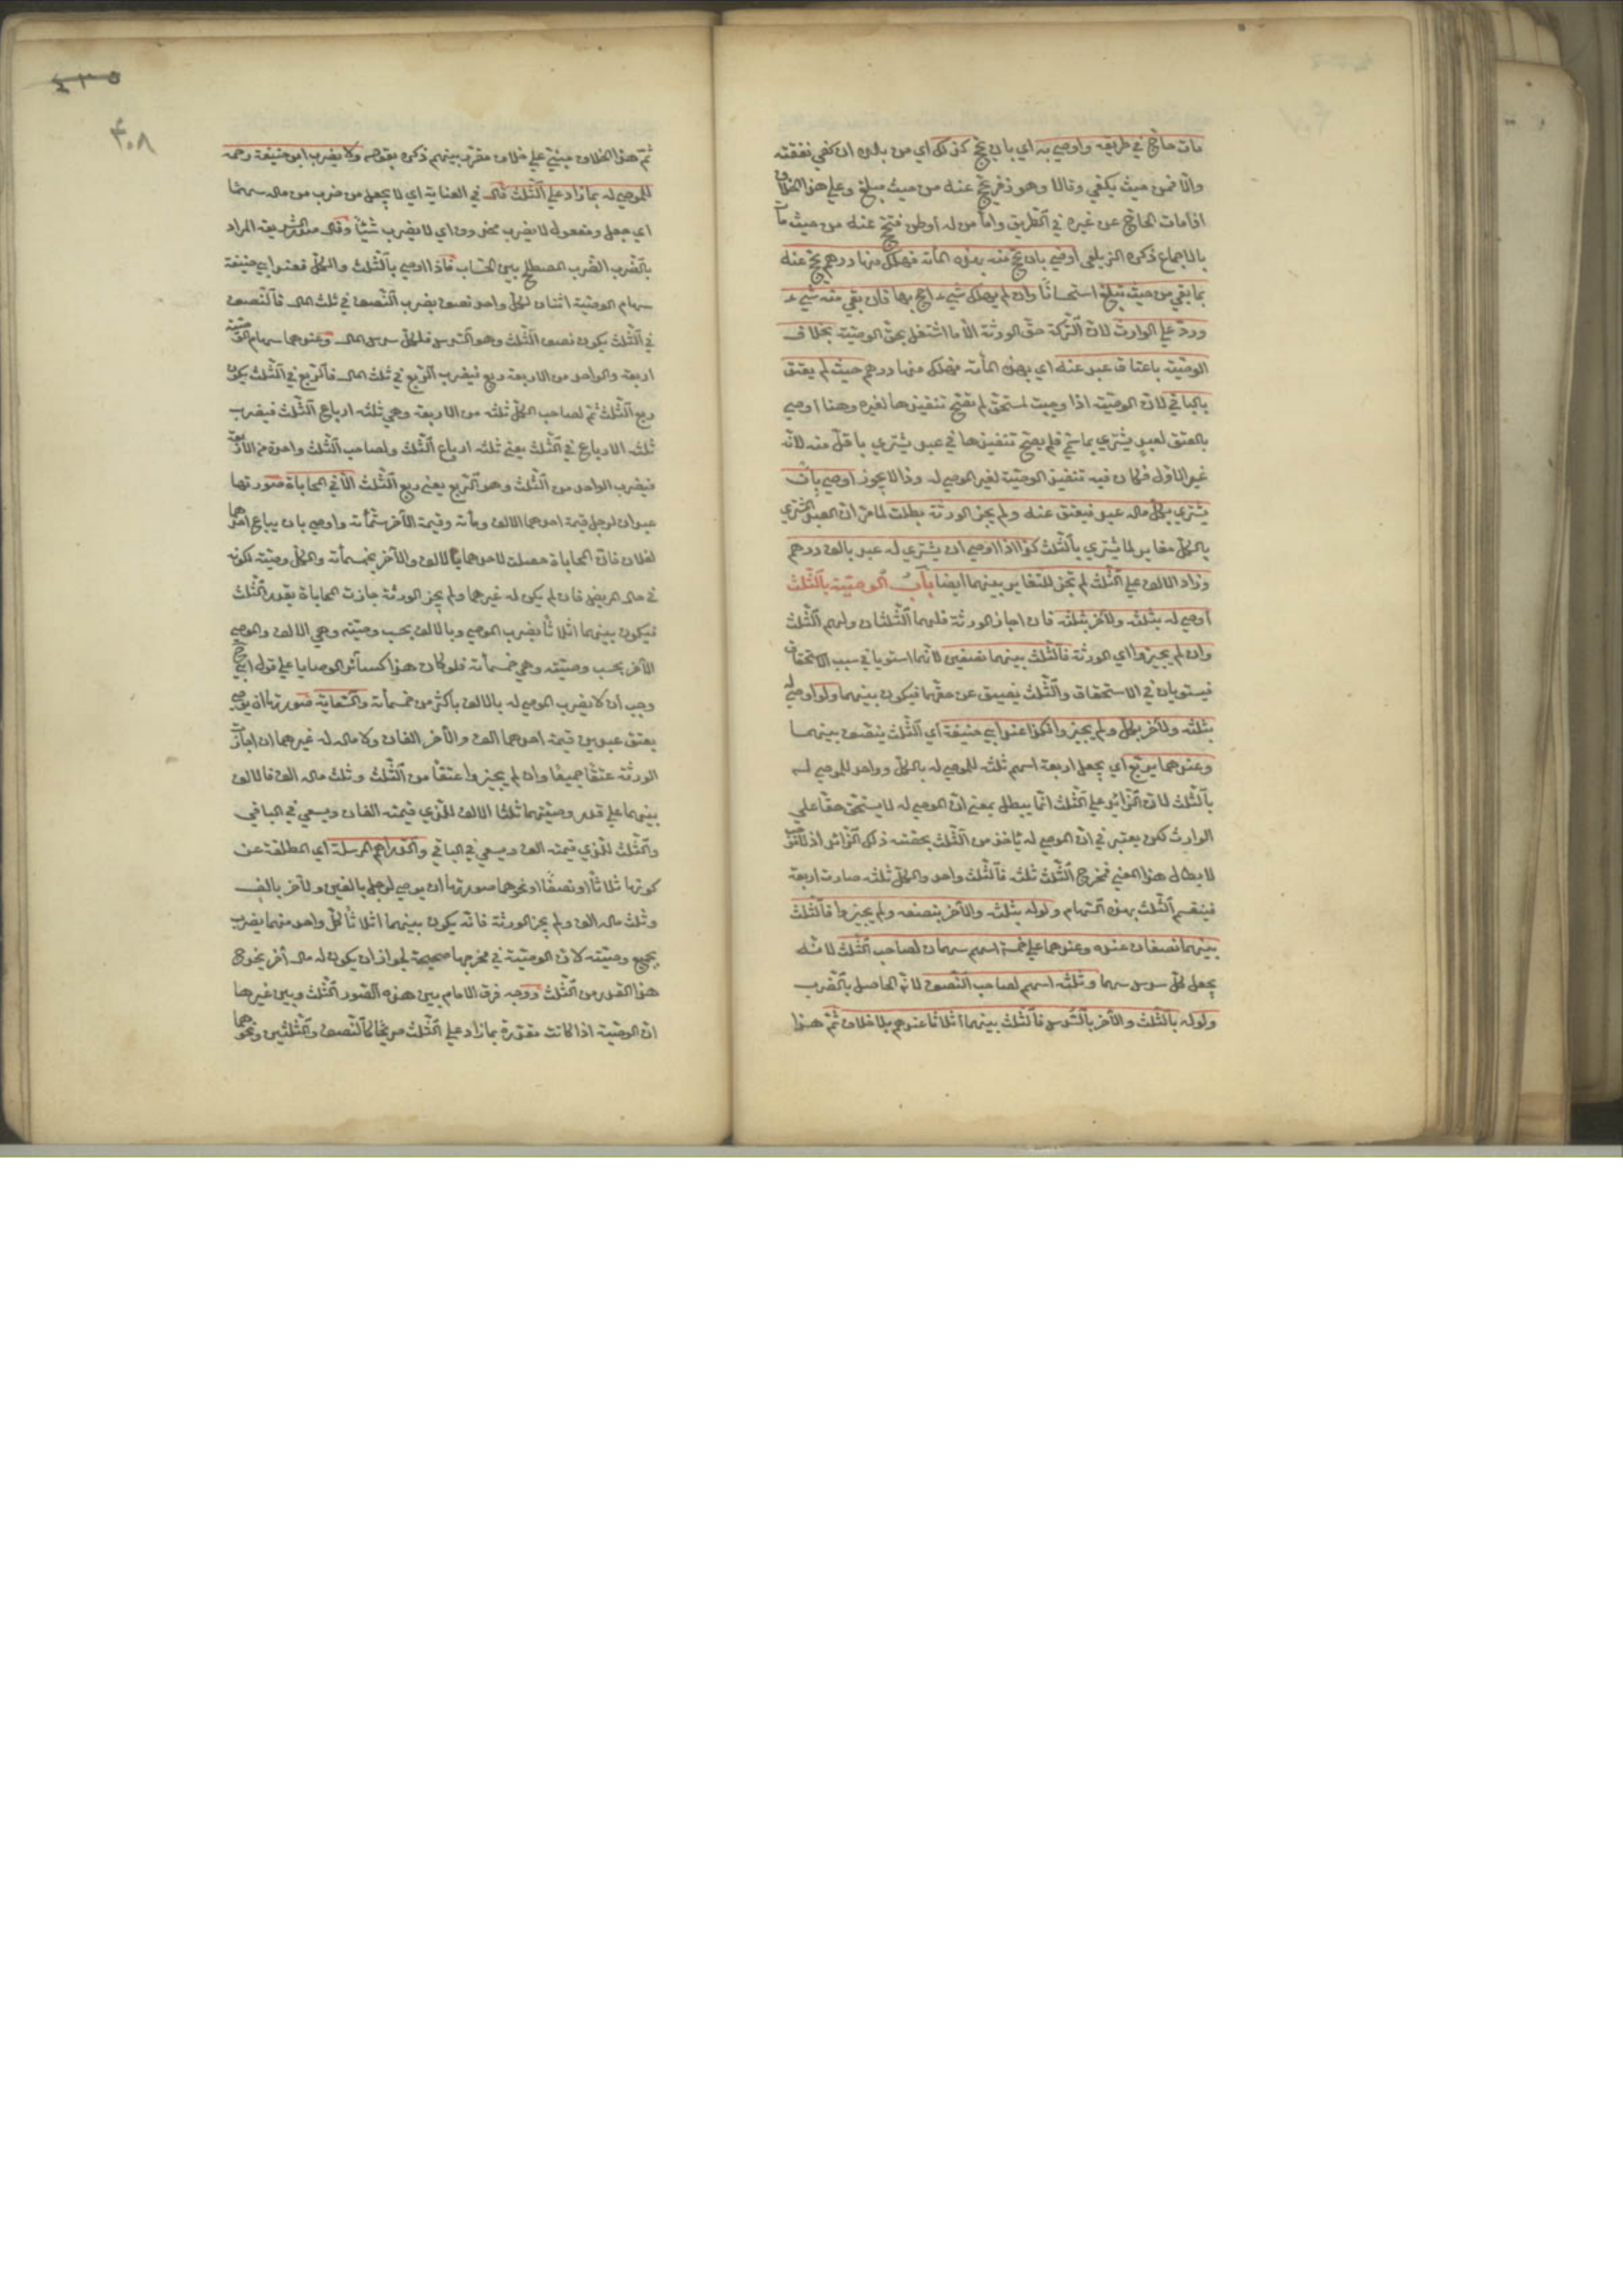 مات حاج في طريقه واوصي به اي بان يحج كذلك اي من بلده ان كفي نفقته
والا فمن حيث يكفي وقالا وهو زفر يحج عنه من حيث مبلغ وعلي هذا الخلاف
اذا مات الحاج عن غيره في الطريق واما من له اوطن فتحج عنه من حيث مات
بالاجماع ذكره الزيلعي اوصي بان يحج منه بهذه المأته فهلك منها درهم يحج عنه
بما بقي من حيث تبلغ استحسانا وان لم يهلك شيء حج بها فان بقي منه شيء
ورد علي الوارث لان التركة حق الورثة الا ما اشتغل بحق الوصية بخلاف
الوصية باعتاق عبد عنه اي بهذه المأته فهلك منها درهم حيث لم يعتق
بالباقي لان الوصية اذا وجبت لمستحق لم تصح تنفيذها لغيره وهنا اوصي
بالعتق لعبد يشتري بما سمي فلم يصح تنفيذها في عبد يشتري باقل منه لانه
غير الاول فكان فيه تنفيذ الوصية لغير الموصي له وذا لا يجوز اوصي بان
يشتري بكل ماله عبد فيعتق عنه ولم يجز الورثة بطلت لما مر ان العبد المشتري
بالكل مغاير لما يشتري بالثلث كذا اذا اوصي ان يشتري له عبد بالف درهم
وزاد الالف علي الثلث لم تجز للتغاير بينهما ايضا باب الوصية بالثلث
اوصي له بثلثه ولآخر بثلثه فان اجاز الورثة فلهما الثلثان ولهم الثلث
وان لم يجيزوا اي الورثة فالثلث بينهما نصفين لانهما استويا في سبب الاستحقاق
فيستويان في الاستحقاق والثلث يضيق عن حقهما فيكون بينهما ولو اوصي له
بثلثه ولآخر بكل ولم يجيزوا فكذا عند ابي حنيفة اي الثلث ينصف بينهما
وعندهما يربع اي يجعل اربعة اسهم ثلثه للموصي له بالكل وواحد للموصي له
بالثلث لان الزائد علي الثلث انما يبطل بمعني ان الموصي له لا يستحق حقا علي
الوارث لكن يعتبر في ان الموصي له يأخذ من الثلث بحصته ذلك الزائد اذ لا موجب
لابطال هذا المعني فمخرج الثلث ثلثه فالثلث واحد والكل ثلثه صارت اربعة
فينقسم الثلث بهذه السهام ولو له بثلثه والآخر بنصفه ولم يجيزوا فالثلث
بينهما نصفان عنده وعندهما علي خمسة اسهم سهمان لصاحب الثلث لانه
يجعل لكل سدس سهما وثلثه اسهم لصاحب النصف لانه الحاصل بالضرب
ولو له بالثلث والآخر بالسدس فالثلث بينهما اثلاثا عندهم بلا خلاف ثم هذا
٤٣٥
٤٠٨
ثم هذا الخلاف مبني علي خلاف مقرر بينهم ذكره بقوله ولا يضرب ابو حنيفة رحمه
للموصي له بما زاد علي الثلث قال في العناية اي لا يجعل من ضرب من ماله سهما
اي جعل ومفعوله لا يضرب محذوف اي لا يضرب شيئا وقال صدر الشريعة المراد
بالضرب الضرب المصطلح بين الحساب فاذا اوصي بالثلث والكل فعند ابي حنيفة
سهام الوصية اثنان لكل واحد نصف يضرب النصف في ثلث المال فالنصف
في الثلث يكون نصف الثلث وهو السدس فلكل سدس المال وعندهما سهام الوصية
اربعة والواحد من الاربعة ربع فيضرب الربع في ثلث المال فالربع في الثلث يكون
ربع الثلث ثم لصاحب الكل ثلثه من الاربعة وهي ثلثه ارباع الثلث فيضرب
ثلثه الارباع في الثلث يعني ثلثه ارباع الثلث ولصاحب الثلث واحدة من الاربعة
فيضرب الواحد من الثلث وهو الربع يعني ربع الثلث الا في المحاباة صورتها
عبدان لرجل قيمة احدهما الالف ومأته وقيمة الآخر ستمأته واوصي بان يباع احدهما
لفلان فان المحاباة حصلت لاحدهما بالالف والآخر بخمسمأته والكل وصية لكونه
في حال المريض فان لم يكن له غيرهما ولم يجز الورثة جازت المحاباة بقدر الثلث
فيكون بينهما اثلاثا يضرب الموصي وبالالف بحسب وصيته وهي الالف والموصي
الآخر بحسب وصيته وهي خمسمأته فلو كان هذا كسائر الوصايا علي قول ابي ح
وجب ان لا يضرب الموصي له بالالف باكثر من خمسمأته والسعاية صورتها ان يوصي
بعتق عبدين قيمة احدهما الف والآخر الفان ولا مال له غيرهما ان اجازت
الورثة عتقا جميعا وان لم يجيزوا عتقا من الثلث وثلث ماله الف فالالف
بينهما علي قدر وصيتهما ثلثا الالف للذي قيمته الفان ويسعي في الباقي
والثلث للذي قيمته الف ويسعي في الباقي والدراهم المرسلة اي المطلقة عن
كونها ثلاثا او نصفا او نحوهما صورتها ان يوصي لرجل بالفين ولآخر بالف
وثلث ماله الف ولم يجز الورثة فانه يكون بينهما اثلاثا لكل واحد منهما يضرب
بجميع وصيته لان الوصية في مخرجها صحيحة لجواز ان يكون له مال آخر يخرج
هذا القدر من الثلث ووجه فرق الامام بين هذه الصور الثلث وبين غيرها
ان الوصية اذا كانت مقدرة بما زاد علي الثلث صريحا كالنصف والثلثين ونحوهما